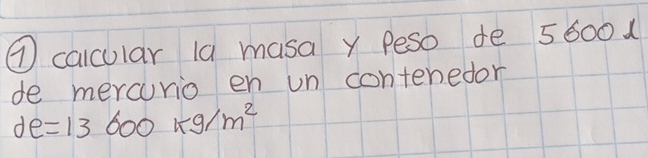 ① calcular la masa y peso de 5600 l
de mercurio en un contenedor
de=13 600 kg/m²